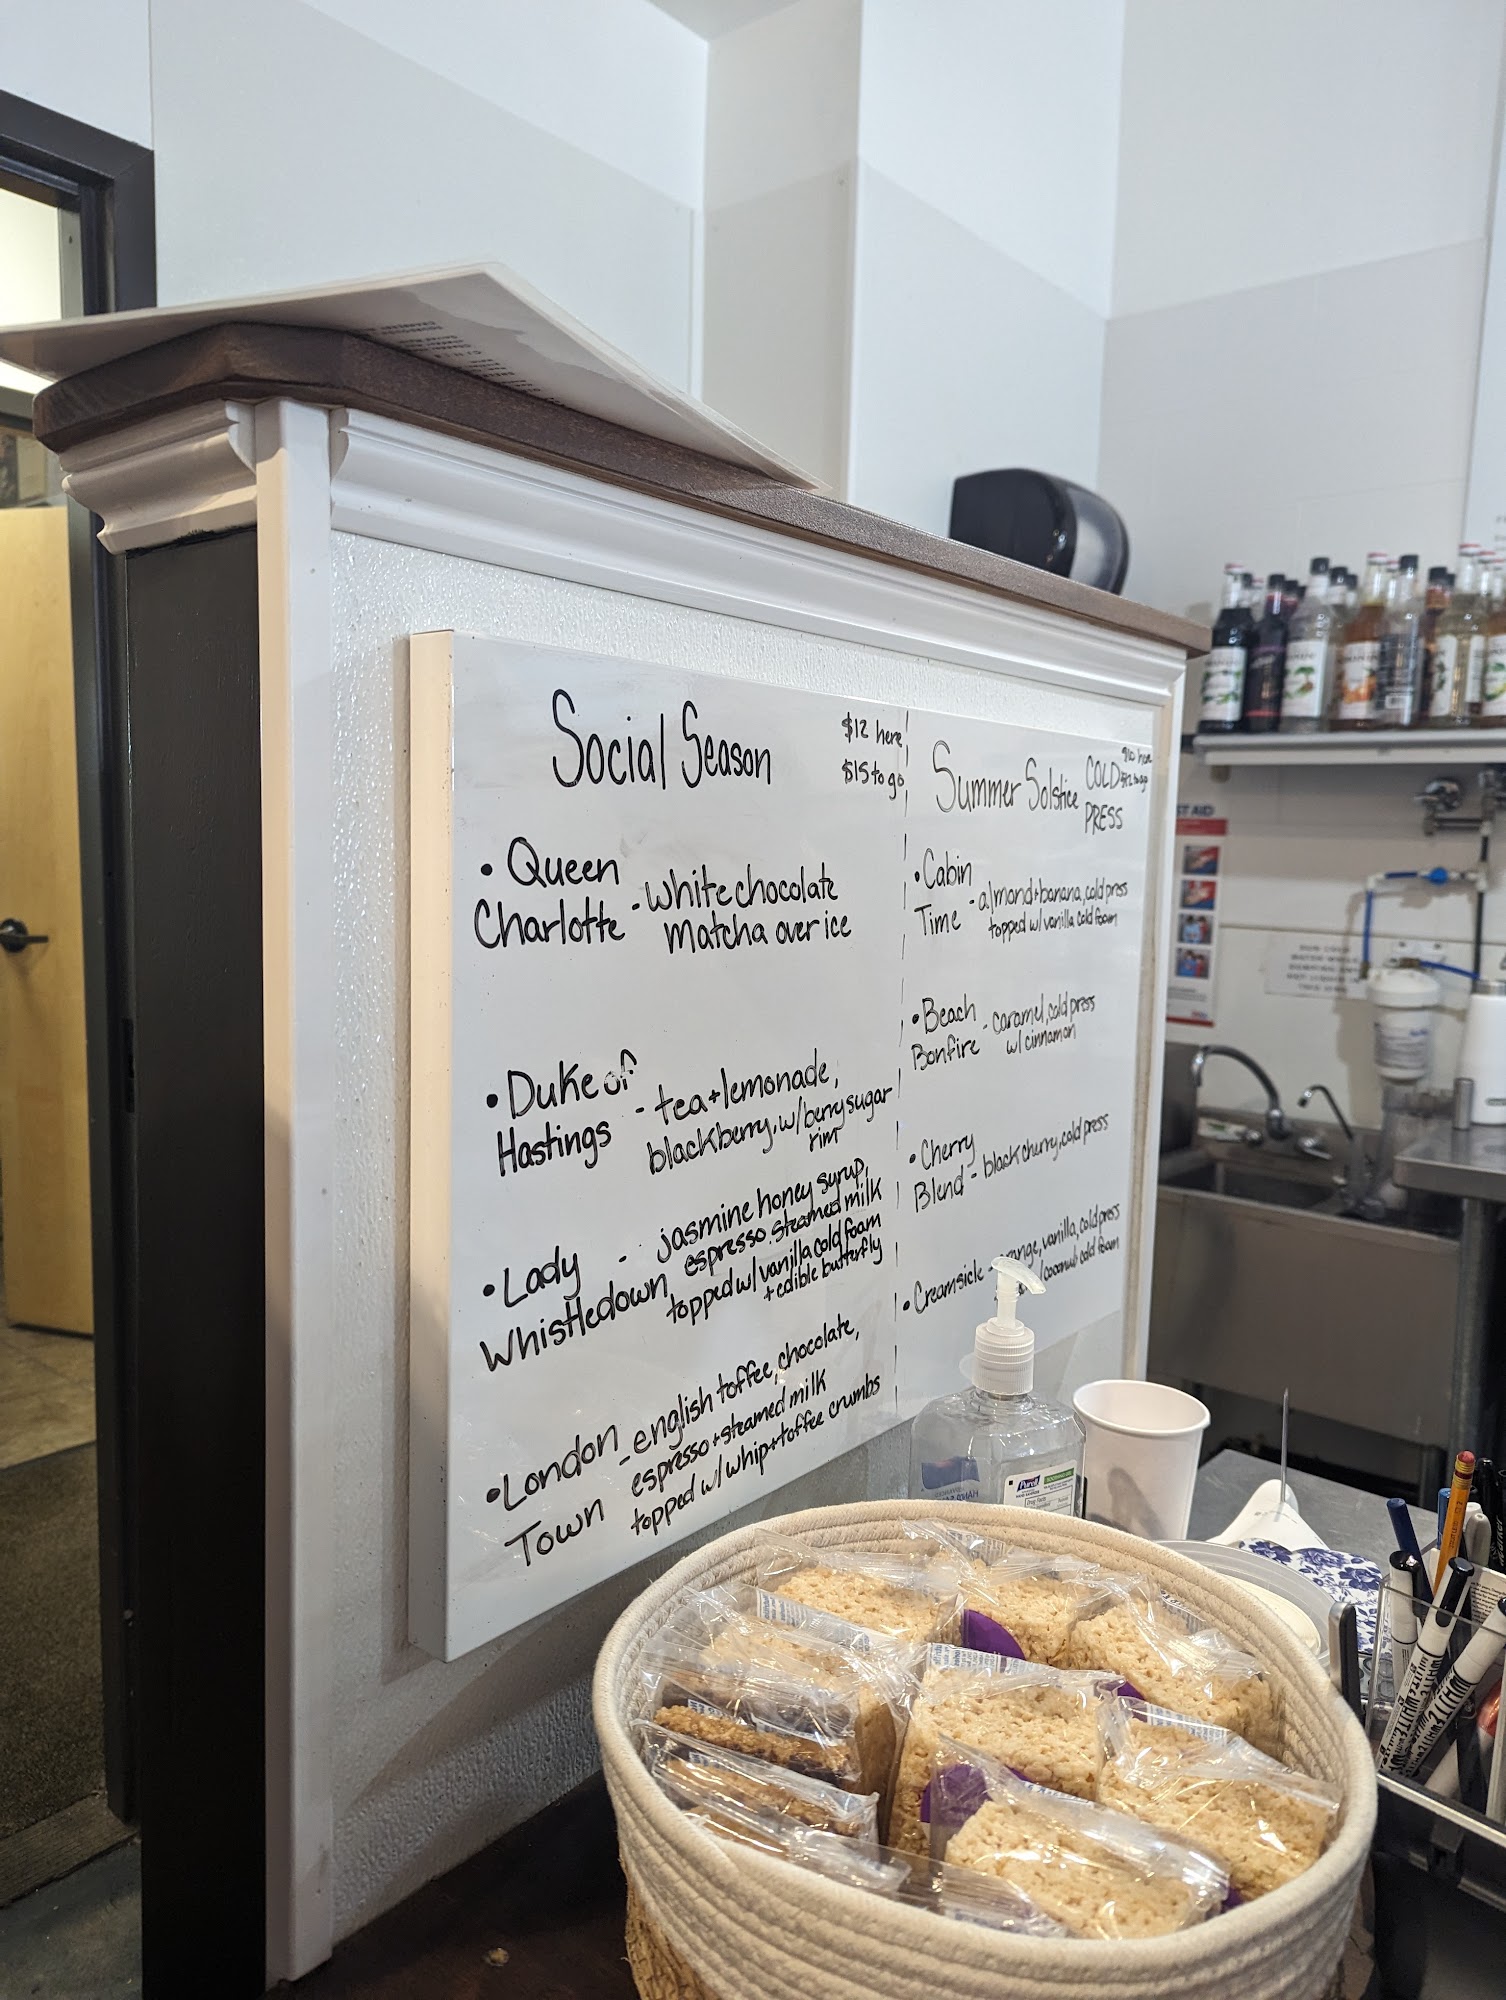 Social Season
$12 here
$15 to go
• Queen
Charlotte - white chocolate
matcha over ice
• Duke of
Hastings - tea + lemonade,
blackberry, w/ berry sugar
rim
• Lady
Whistledown - jasmine honey syrup,
espresso, steamed milk
topped w/ vanilla cold foam
+ edible butterfly
• London
Town - english toffee, chocolate,
espresso + steamed milk
topped w/ whip + toffee crumbs
Summer Solstice COLD
PRESS
$10 here
$12 to go
• Cabin
Time - almond + banana, cold press
topped w/ vanilla cold foam
• Beach
Bonfire - caramel, cold press
w/ cinnamon
• Cherry
Blend - black cherry, cold press
• Creamsicle - orange, vanilla, cold press
w/ coconut cold foam
ST AID
PURELL
ADVANCED
Drug Facts
RITE WHITE